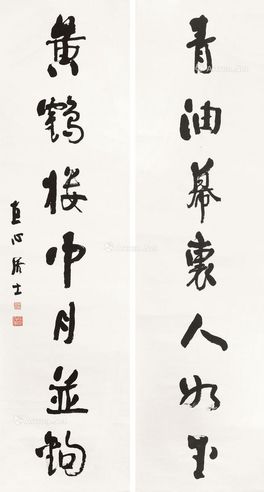 青油幕裏人如玉
黄鶴樓中月並鉤
直心士